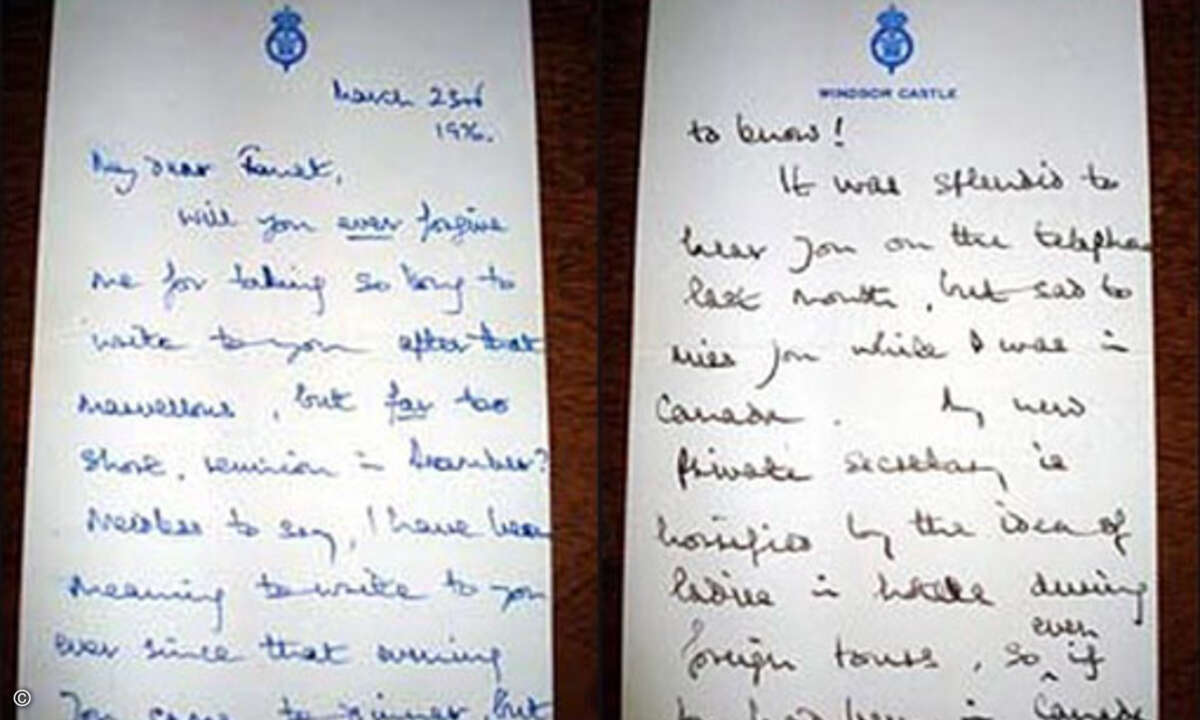 March 23rd
1976.
My dear Janet,
Will you ever forgive
me for taking so long to
write to you after that
marvellous, but far too
short, reunion in December?
Needless to say, I have been
meaning to write to you
ever since that evening
you came to dinner, but
WINDSOR CASTLE
to know!
It was splendid to
hear you on the telephone
last month, but sad to
miss you while I was in
Canada. My new
Private Secretary is
horrified by the idea of
ladies in hotels during
foreign tours, so even if
in Canada
©